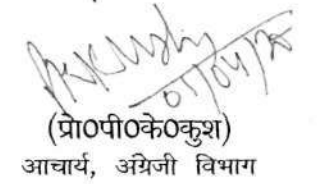 01/04/25
(प्रो0पी0के0कुश)
आचार्य, अंग्रेजी विभाग